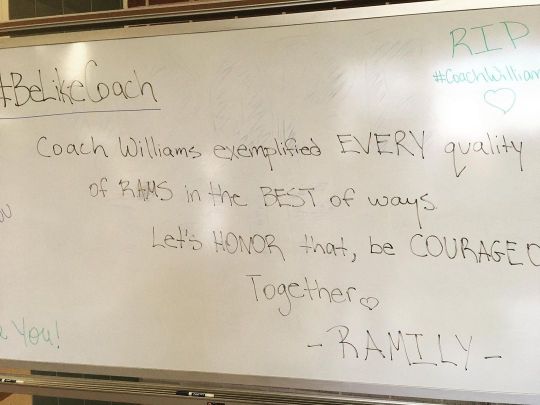 RIP
#CoachWilliam
#BeLikeCoach
Coach Williams exemplified EVERY quality
of RAMS in the BEST of ways
Let's HONOR that, be COURAGEO
Together
You!
- RAMILY -